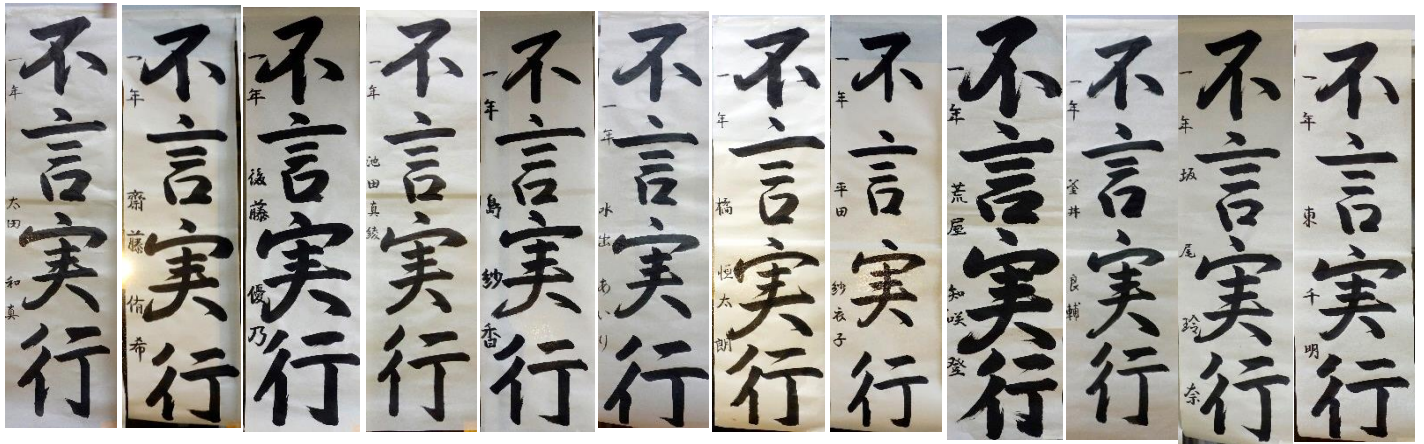 不言実行
一年 太田和真
不言実行
一年 齋藤侑希
不言実行
一年 後藤優乃
不言実行
一年 池田真綾
不言実行
一年 島紗香
不言実行
一年 水出あいり
不言実行
一年 橘恒太朗
不言実行
一年 平田紗衣子
不言実行
一年 荒屋知咲登
不言実行
一年 釜井良輔
不言実行
一年 坂尾玲奈
不言実行
一年 東千明